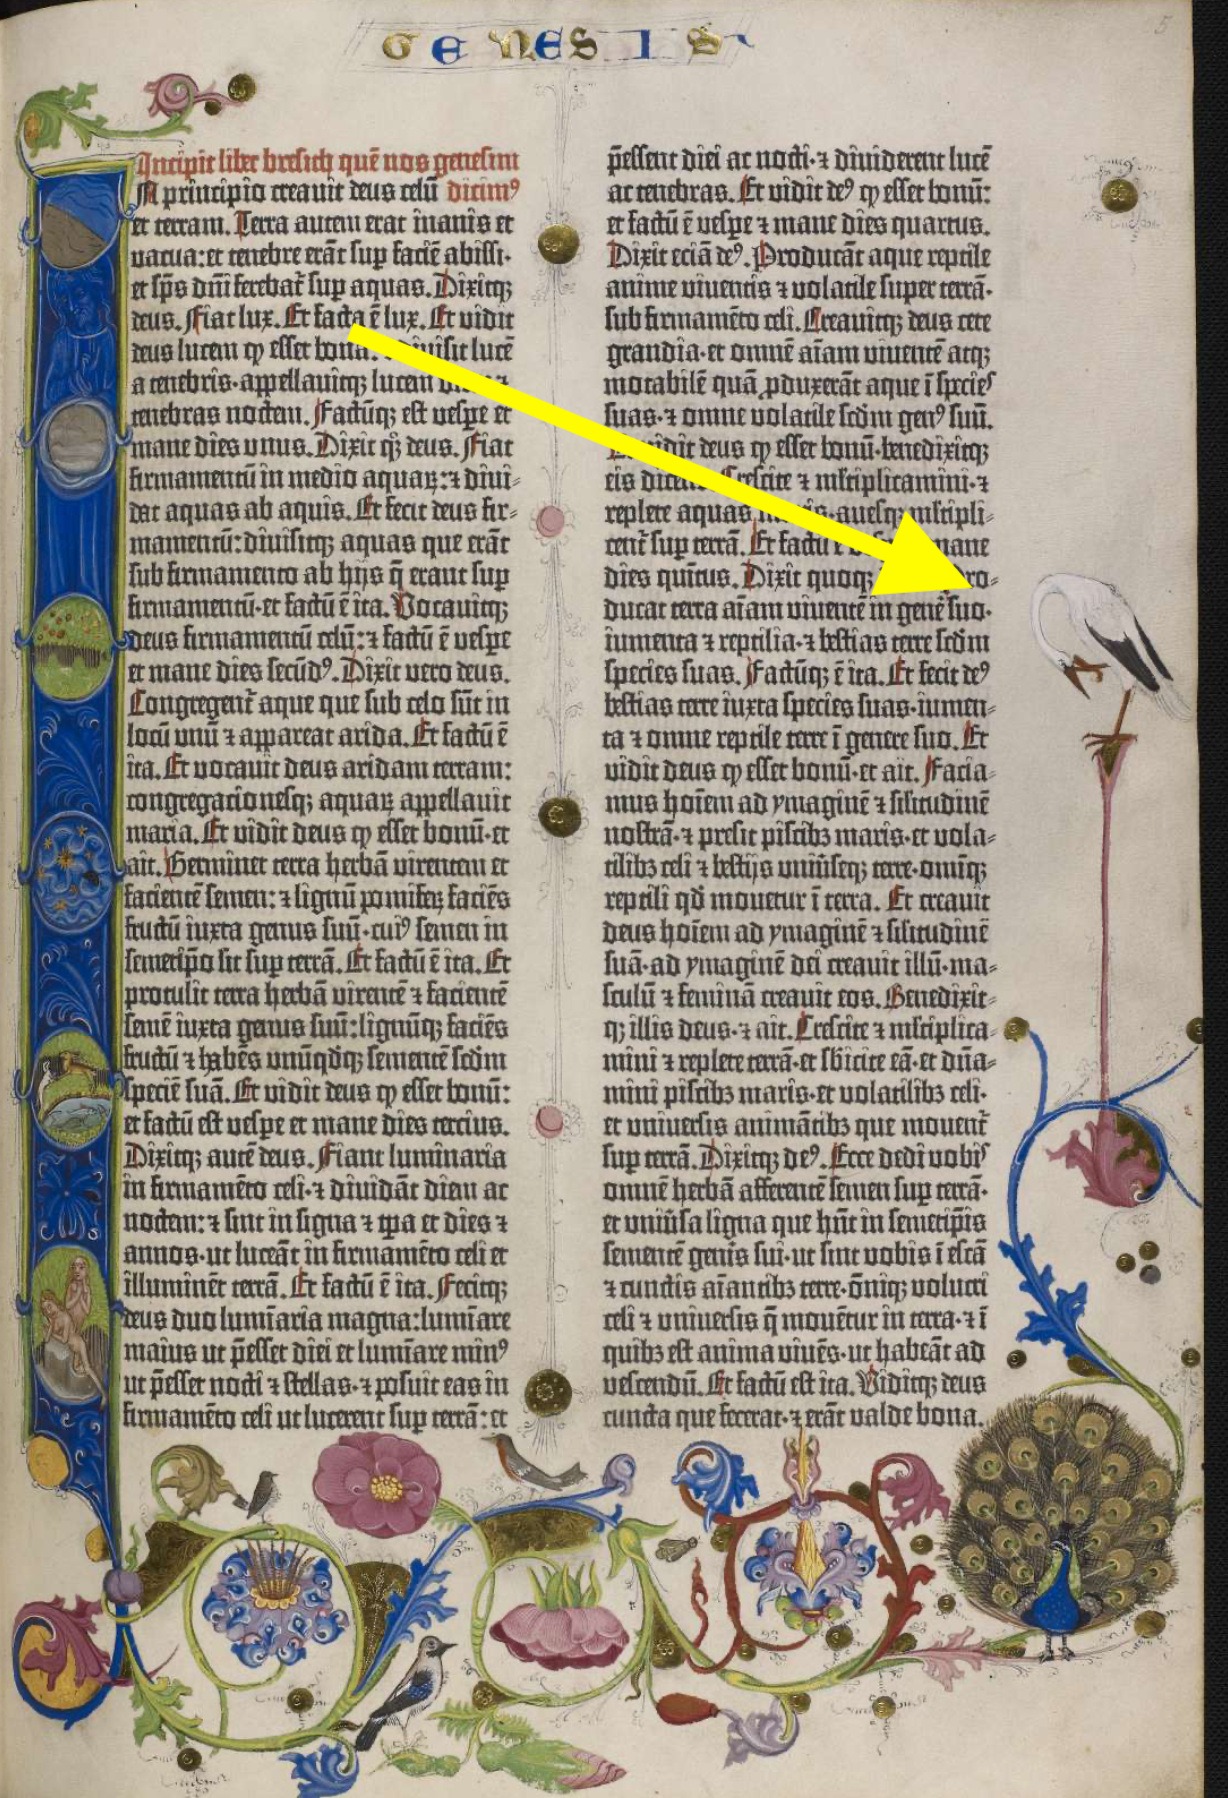 GENESIS
5
Incipit liber bresich quē nos genesim
In principio creauit deus celū dicimꝰ
et terram. Terra autem erat inanis et
vacua: et tenebre erāt suꝑ faciē abissi·
et sp̄s dn̄i ferebat᷑ suꝑ aquas. Dixitqꝫ
deus. Fiat lux. Et facta ē lux. Et vidit
deus lucem ꝙ esset bona: diuisit lucē
a tenebris· appellauitqꝫ lucem
tenebras noctem. Factūqꝫ est vesꝑe et
mane dies vnus. Dixit qꝫ deus. Fiat
firmamentū in medio aquaꝝ: ⁊ diui-
dat aquas ab aquis. Et fecit deus fir-
mamentū: diuisitqꝫ aquas que erāt
sub firmamento ab hijs q̄ erant suꝑ
firmamentū· et factū ē ita. Vocauitqꝫ
deus firmamentū celū: ⁊ factū ē vesꝑe
et mane dies secūdꝰ. Dixit vero deus.
Congregent᷑ aque que sub celo sūt in
locū vnū ⁊ appareat arida. Et factū ē
ita. Et vocauit deus aridam terram:
congregacionesqꝫ aquaꝝ appellauit
maria. Et vidit deus ꝙ esset bonū· et
ait. Germinet terra herbā virentem et
facientē semen: ⁊ lignū pomifeꝝ faciēs
fructū iuxta genus suū· cuiꝰ semen in
semetip̄o sit suꝑ terrā. Et factū ē ita. Et
protulit terra herbā virentē ⁊ facientē
semē iuxta genus suū: lignūqꝫ faciēs
fructū ⁊ habēs vnūqdqꝫ sementē scd̄m
speciē suā. Et vidit deus ꝙ esset bonū:
et factū est vesꝑe et mane dies tercius.
Dixitqꝫ autē deus. Fiant luminaria
in firmamēto celi· ⁊ diuidāt diem ac
noctem: ⁊ sint in signa ⁊ tꝑa et dies ⁊
annos· ut luceāt in firmamēto celi et
illuminēt terrā. Et factū ē ita. Fecitqꝫ
deus duo lumīaria magna: lumīare
maius ut p̄esset diei et lumīare minꝰ
ut p̄esset nocti ⁊ stellas· ⁊ posuit eas in
firmamēto celi ut lucerent suꝑ terrā: et
p̄essent diei ac nocti· ⁊ diuiderent lucē
ac tenebras. Et vidit deꝰ ꝙ esset bonū:
et factū ē vesꝑe ⁊ mane dies quartus.
Dixit eciā deꝰ. Producāt aque reptile
anime viuentis ⁊ volatile super terrā·
sub firmamēto celi. Creauitqꝫ deus cete
grandia· et omnē aīam viuentē atqꝫ
motabilē quā ꝓduxerāt aque ī species
suas· ⁊ omne volatile scd̄m genꝰ suū.
vidit deus ꝙ esset bonū· benedixitqꝫ
eis dicens. Crescite ⁊ ml̄tiplicamini· ⁊
replete aquas maris· auesqꝫ ml̄tipli-
cent᷑ suꝑ terrā. Et factū ē mane
dies quītus. Dixit quoqꝫ pro-
ducat terra aīam viuentē in genē suo·
iumenta ⁊ reptilia· ⁊ bestias terre scd̄m
species suas. Factūqꝫ ē ita. Et fecit deꝰ
bestias terre iuxta species suas· iumen-
ta ⁊ omne reptile terre ī genere suo. Et
vidit deus ꝙ esset bonū· et ait. Facia-
mus hoīem ad ymaginē ⁊ silitudinē
nostrā· ⁊ presit piscibꝫ maris· et vola-
tilibꝫ celi ⁊ bestijs vniūseqꝫ terre· omīqꝫ
reptili qd̄ mouetur ī terra. Et creauit
deus hoīem ad ymaginē ⁊ silitudinē
suā· ad ymaginē dei creauit illū· ma-
sculū ⁊ feminā creauit eos. Benedixit-
qꝫ illis deus· ⁊ ait. Crescite ⁊ ml̄tiplica-
mini ⁊ replete terrā· et sbīcite eā· et dn̄a-
mini piscibꝫ maris· et volatilibꝫ celi·
et vniuersis animātibꝫ que mouent᷑
suꝑ terrā. Dixitqꝫ deꝰ. Ecce dedi vobis
omnē herbā afferentē semen suꝑ terrā·
et vniūsa ligna que hn̄t in semetip̄is
sementē genīs sui· ut sint vobis ī escā
⁊ cunctis aīantibꝫ terre· ōniqꝫ volucri
celi ⁊ vniuersis q̄ mouētur in terra· ⁊ ī
quibꝫ est anima viuēs· ut habeāt ad
vescendū. Et factū est ita. Viditqꝫ deus
cuncta que fecerat· ⁊ erāt valde bona.